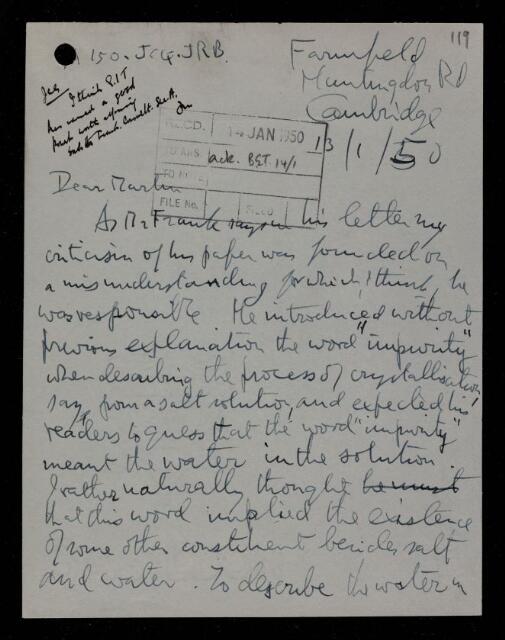 119
150. JCG. JRB.
Farmfield
Huntingdon Rd
Cambridge
13/1/50
I think GIT
has raised a good
point with
RECD. 14 JAN 1950
ack. BGT. 14/1
FILE No.
FILED
Dear Martin
As Mr Frank says in his letter my
criticism of his paper was founded on
a misunderstanding for which, I think, he
was responsible. He introduced without
previous explanation the word "impurity"
when describing the process of crystallisation
say, from a salt solution, and expected his
readers to guess that the word "impurity"
meant the water in the solution.
I rather naturally thought he must
that this word implied the existence
of some other constituent besides salt
and water. To describe the water in